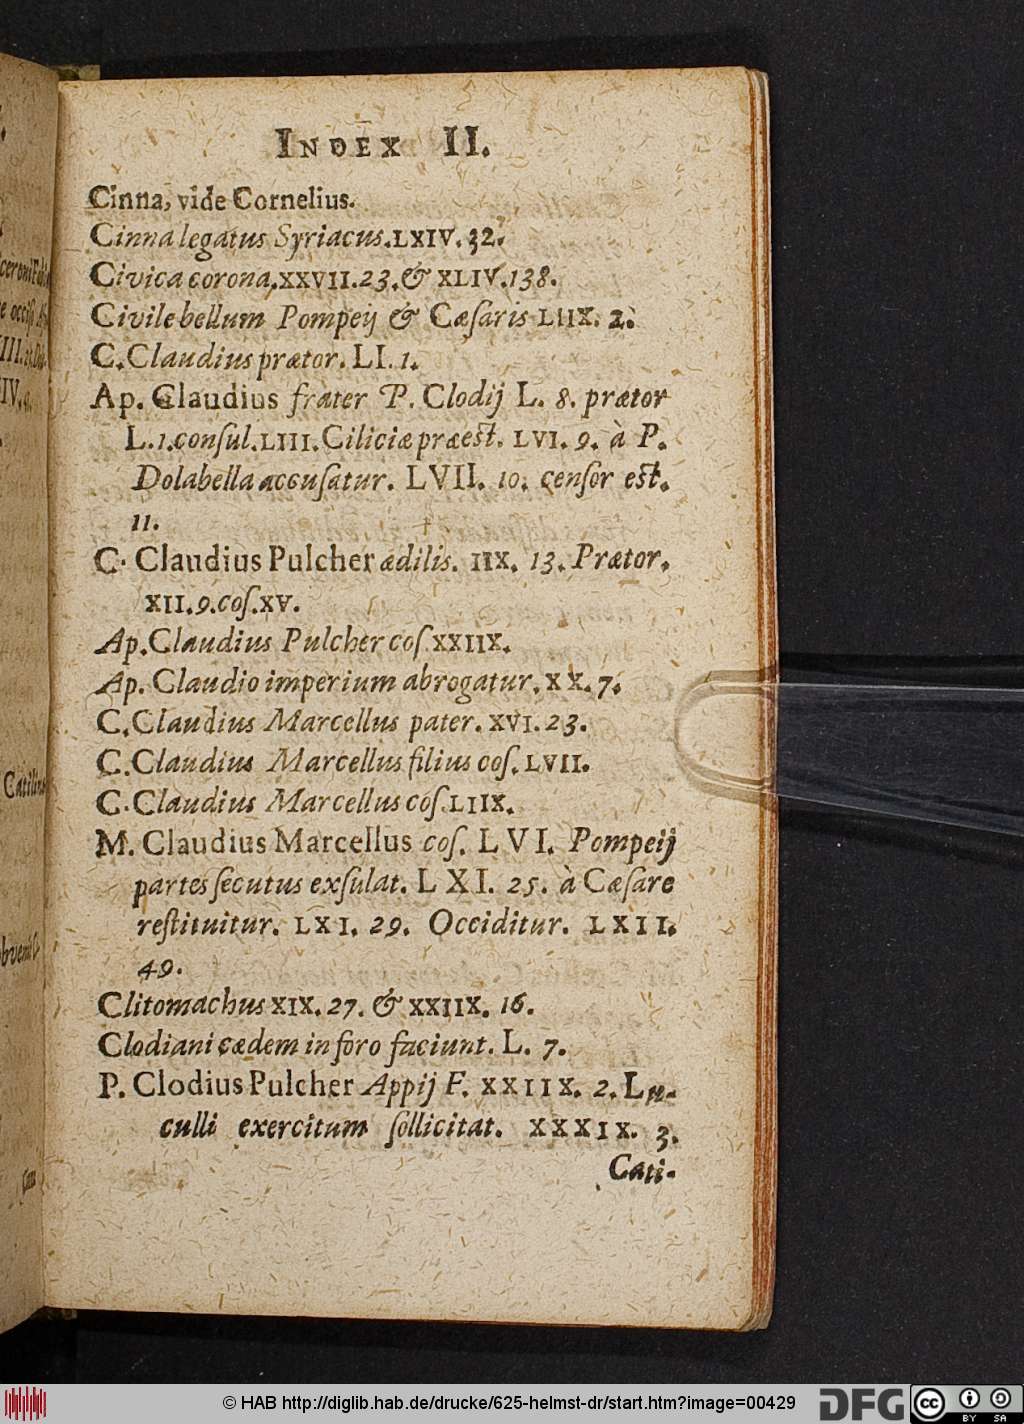 INDEX II.
Cinna, vide Cornelius.
Cinna legatus Syriacus. LXIV. 32.
Civica corona. XXVII. 23. & XLIV. 138.
Civile bellum Pompeij & Cæſaris LIIX. 2.
C. Claudius prætor. LI. 1.
Ap. Claudius frater P. Clodij L. 8. prætor
L. 1. conſul. LIII. Ciliciæ præest. LVI. 9. à P.
Dolabella accuſatur. LVII. 10. cenſor est.
11.
C. Claudius Pulcher ædilis. IIX. 13. Prætor.
XII. 9. coſ. XV.
Ap. Claudius Pulcher coſ. XXIIX.
Ap. Claudio imperium abrogatur. XX. 7.
C. Claudius Marcellus pater. XVI. 23.
C. Claudius Marcellus filius coſ. LVII.
C. Claudius Marcellus coſ. LIIX.
M. Claudius Marcellus coſ. LVI. Pompeij
partes ſecutus exſulat. LXI. 25. à Cæſare
reſtituitur. LXI. 29. Occiditur. LXII.
49.
Clitomachus XIX. 27. & XXIIX. 16.
Clodiani cædem in foro faciunt. L. 7.
P. Clodius Pulcher Appij F. XXIIX. 2. Lu-
culli exercitum ſollicitat. XXXIX. 3.
Cati-
© HAB http://diglib.hab.de/drucke/625-helmst-dr/start.htm?image=00429
DFG
cc BY SA